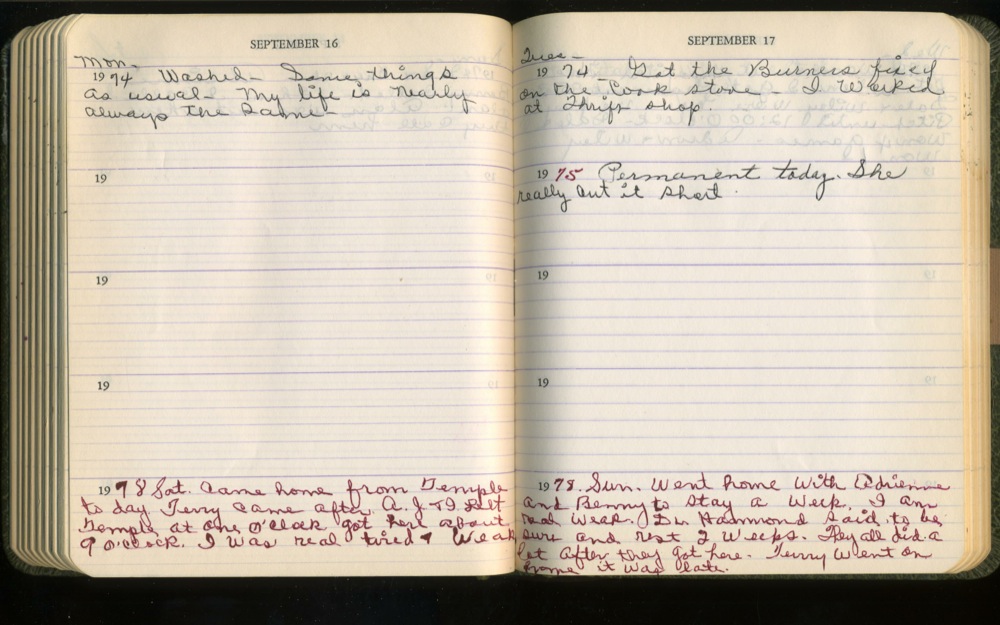 SEPTEMBER 16
Mon-
1974 Washed - Same things
as usual - My life is nearly
always the same -
19
19
19
1978 Sat. Came home from Temple
to day Terry came after A. J. & I. Left
Temple at one o'clock got here about
9 o'clock. I was real tired & Weak
SEPTEMBER 17
Tues -
1974 - Got the Burners fixed
on the Cook stove - I Worked
at Thrift shop.
1975 Permanent today. She
really cut it short.
19
19
1978. Sun. Went home with Adrienne
and Benny to stay a Week. I am
real weak. Dr. Hammond said to be
sure and rest 2 Weeks. They all did a
lot after they got here. Terry went on
home it was late.